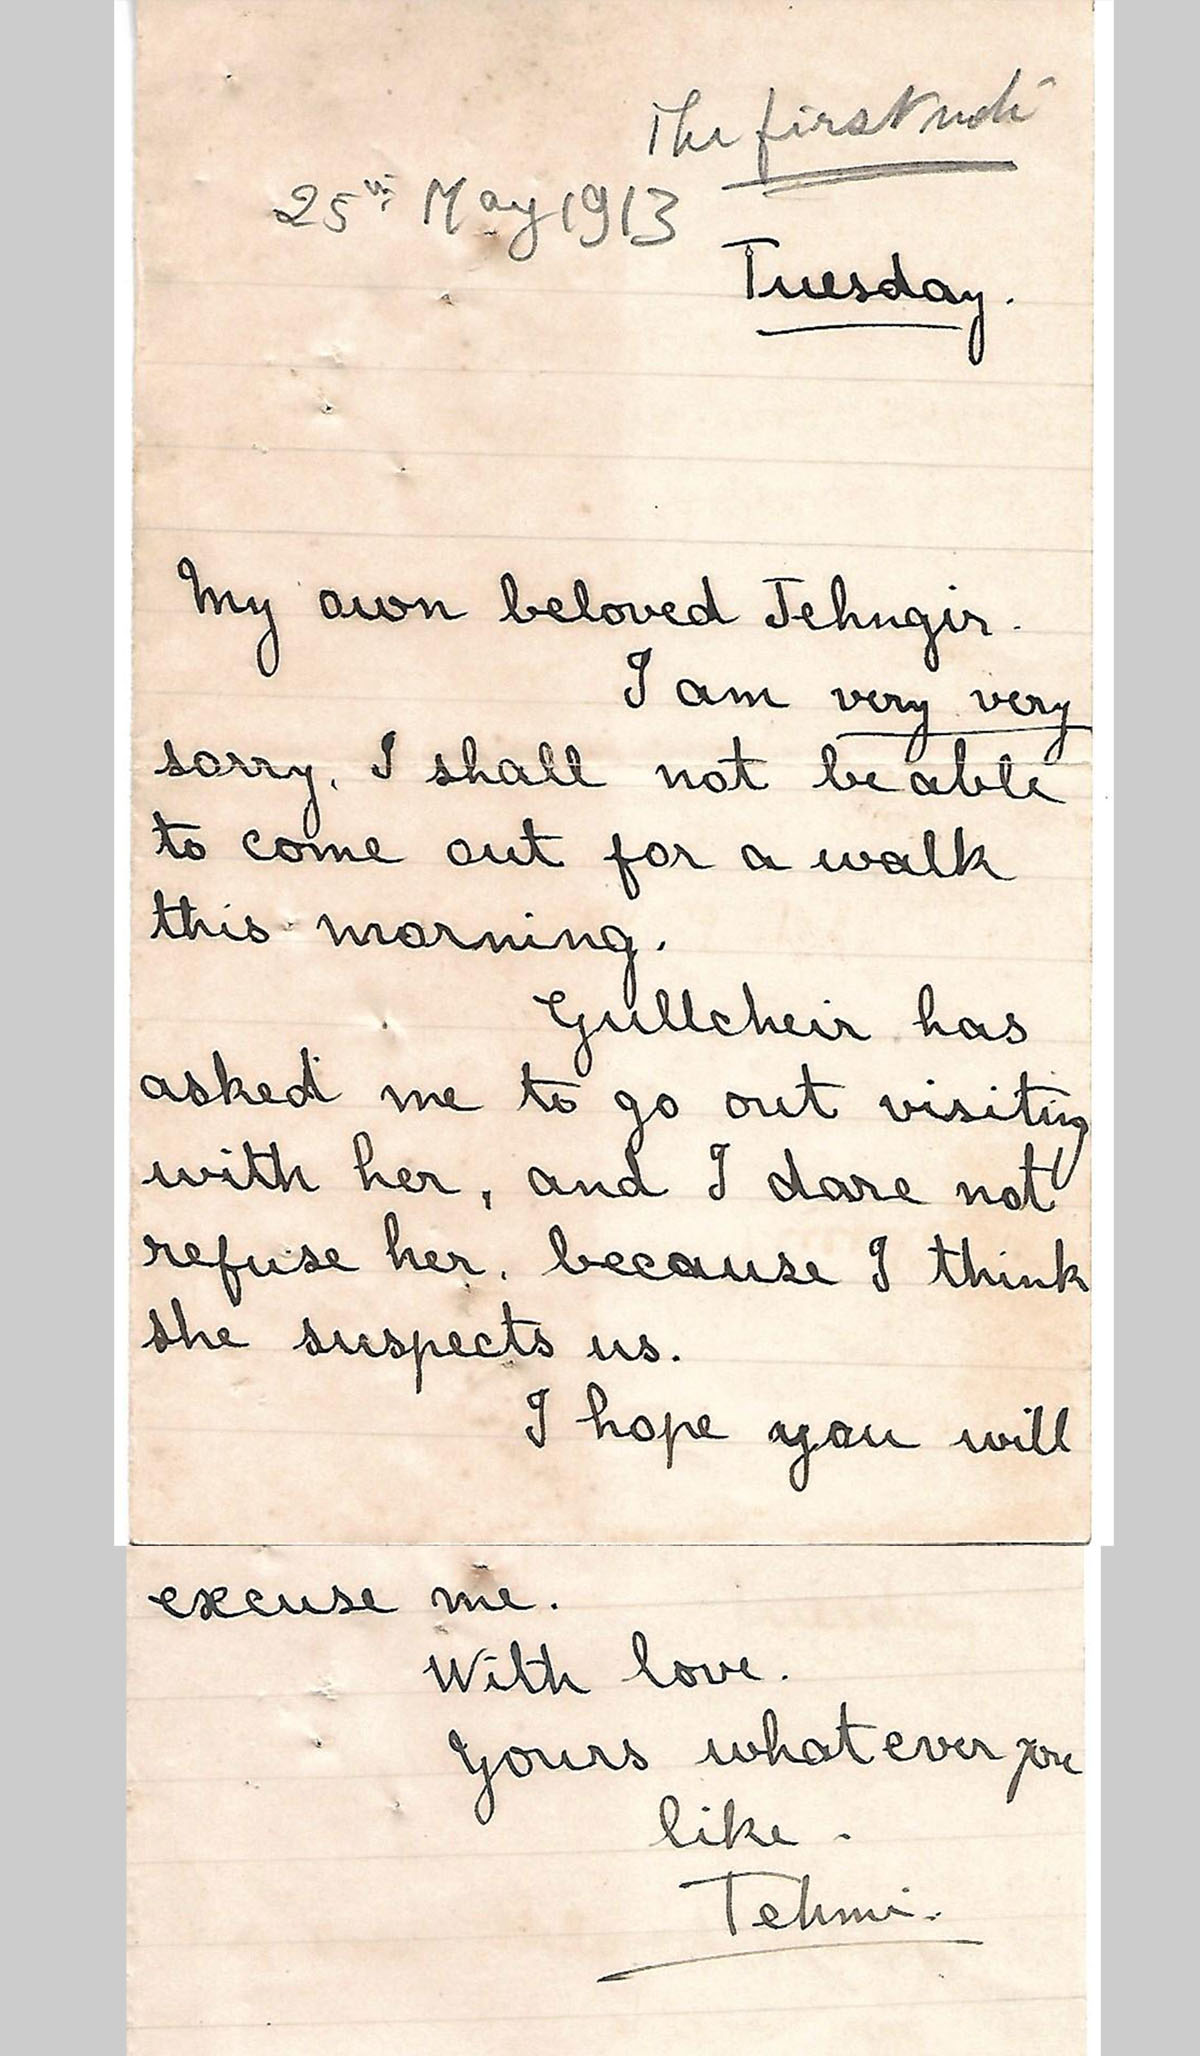 The first note
25th May 1913
Tuesday.
My own beloved Jehngir.
I am very very
sorry, I shall not be able
to come out for a walk
this morning.
Gullcheir has
asked me to go out visiting
with her, and I dare not
refuse her, because I think
she suspects us.
I hope you will
excuse me.
With love.
Yours whatever you
like.
Tehmi.